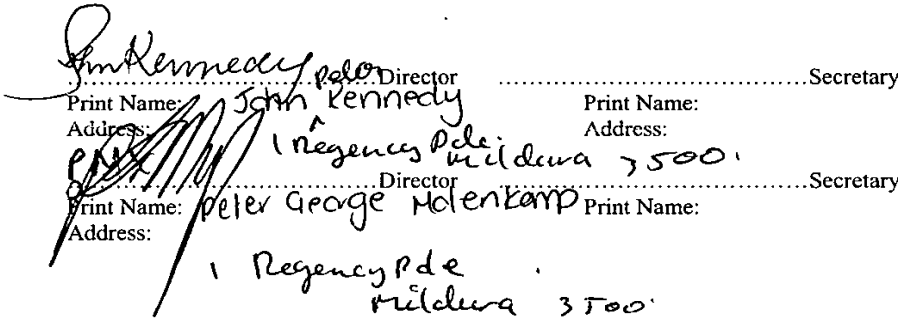 John Kennedy
Peter
Director Secretary
Print Name: John ^ Kennedy Print Name:
Address: Address:
1 Regency Pde.
Mildura 3500.
Director Secretary
Print Name: Peter George Molenkamp Print Name:
Address:
1 Regency Pde
Mildura 3500.